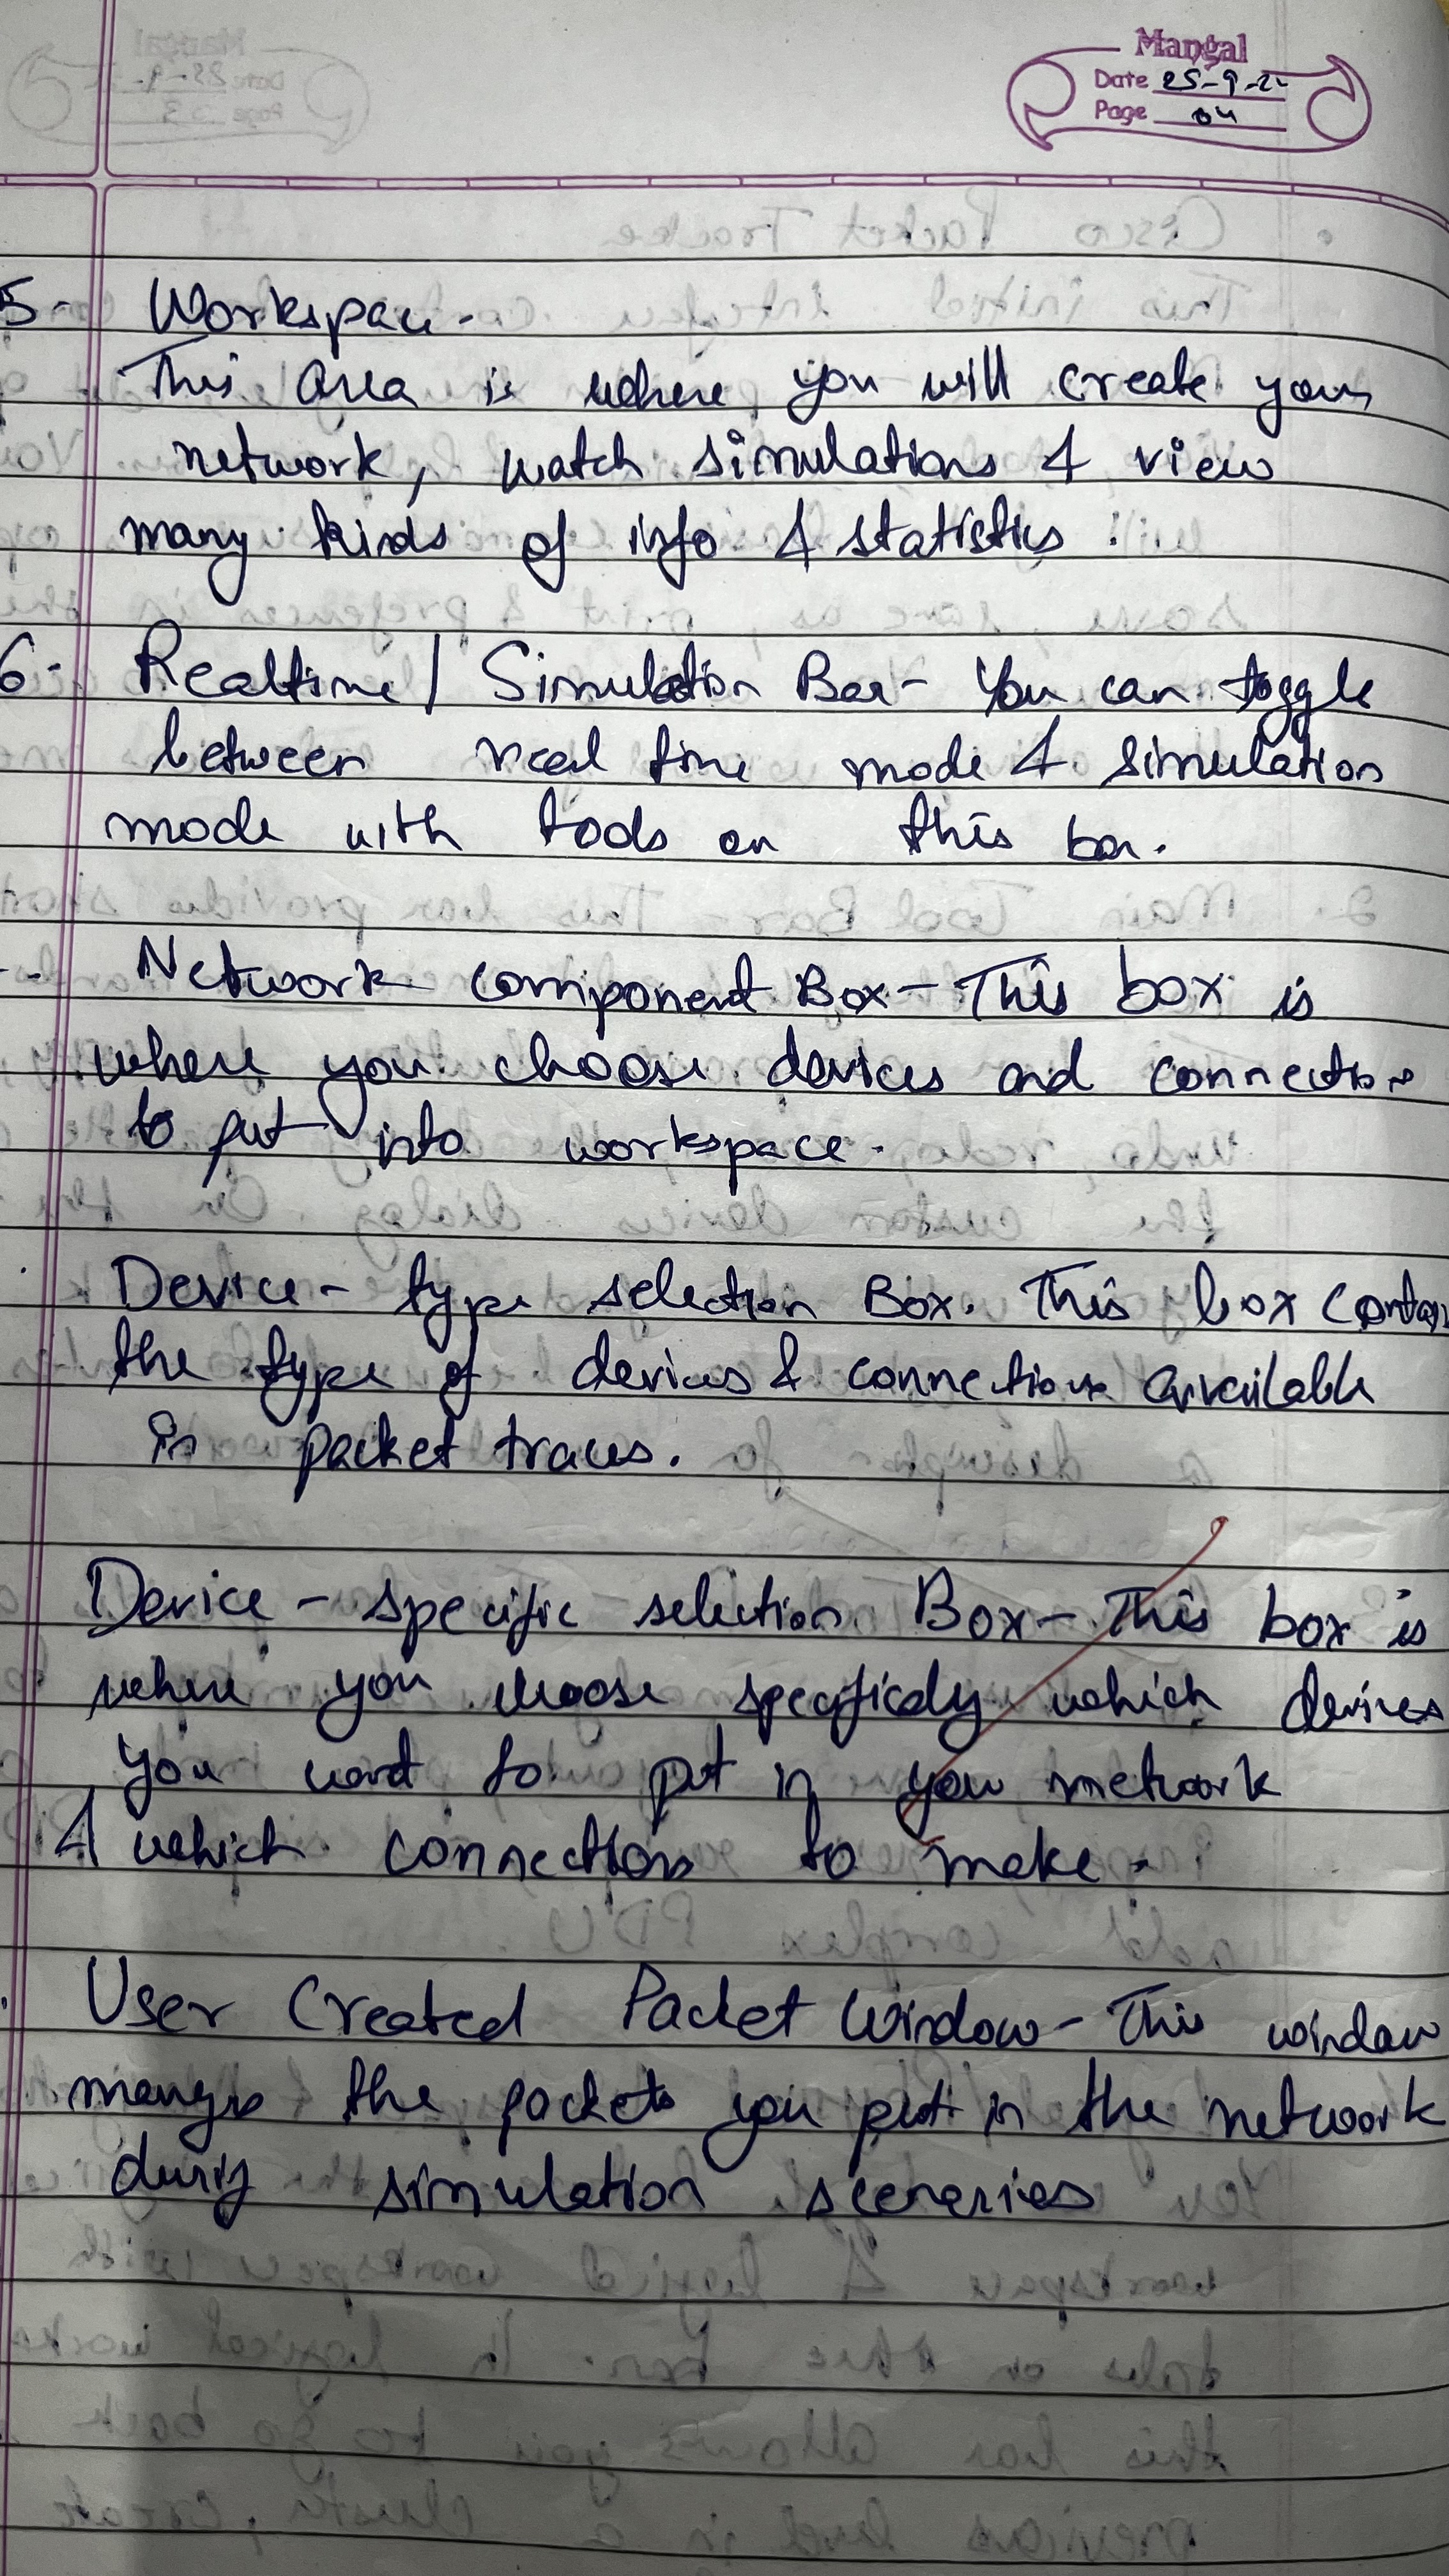 Mangal
Date 25-9-2
Page 04
5- Workspace-
This area is where you will create your
network, watch simulations & view
many kinds of info & statistics.
6- Realtime / Simulation Bar- You can toggle
between real time mode & simulation
mode with tools on this bar.
- Network component Box - This box is
where you choose devices and connections
to put into workspace.
Device - type selection Box. This box contain
the type of devices & connections available
in packet traces.
Device - specific selection Box - This box is
where you choose specifically which devices
you want to put in you network
& which connections to make.
User Created Packet Window - This window
the packets you put in the network
during simulation